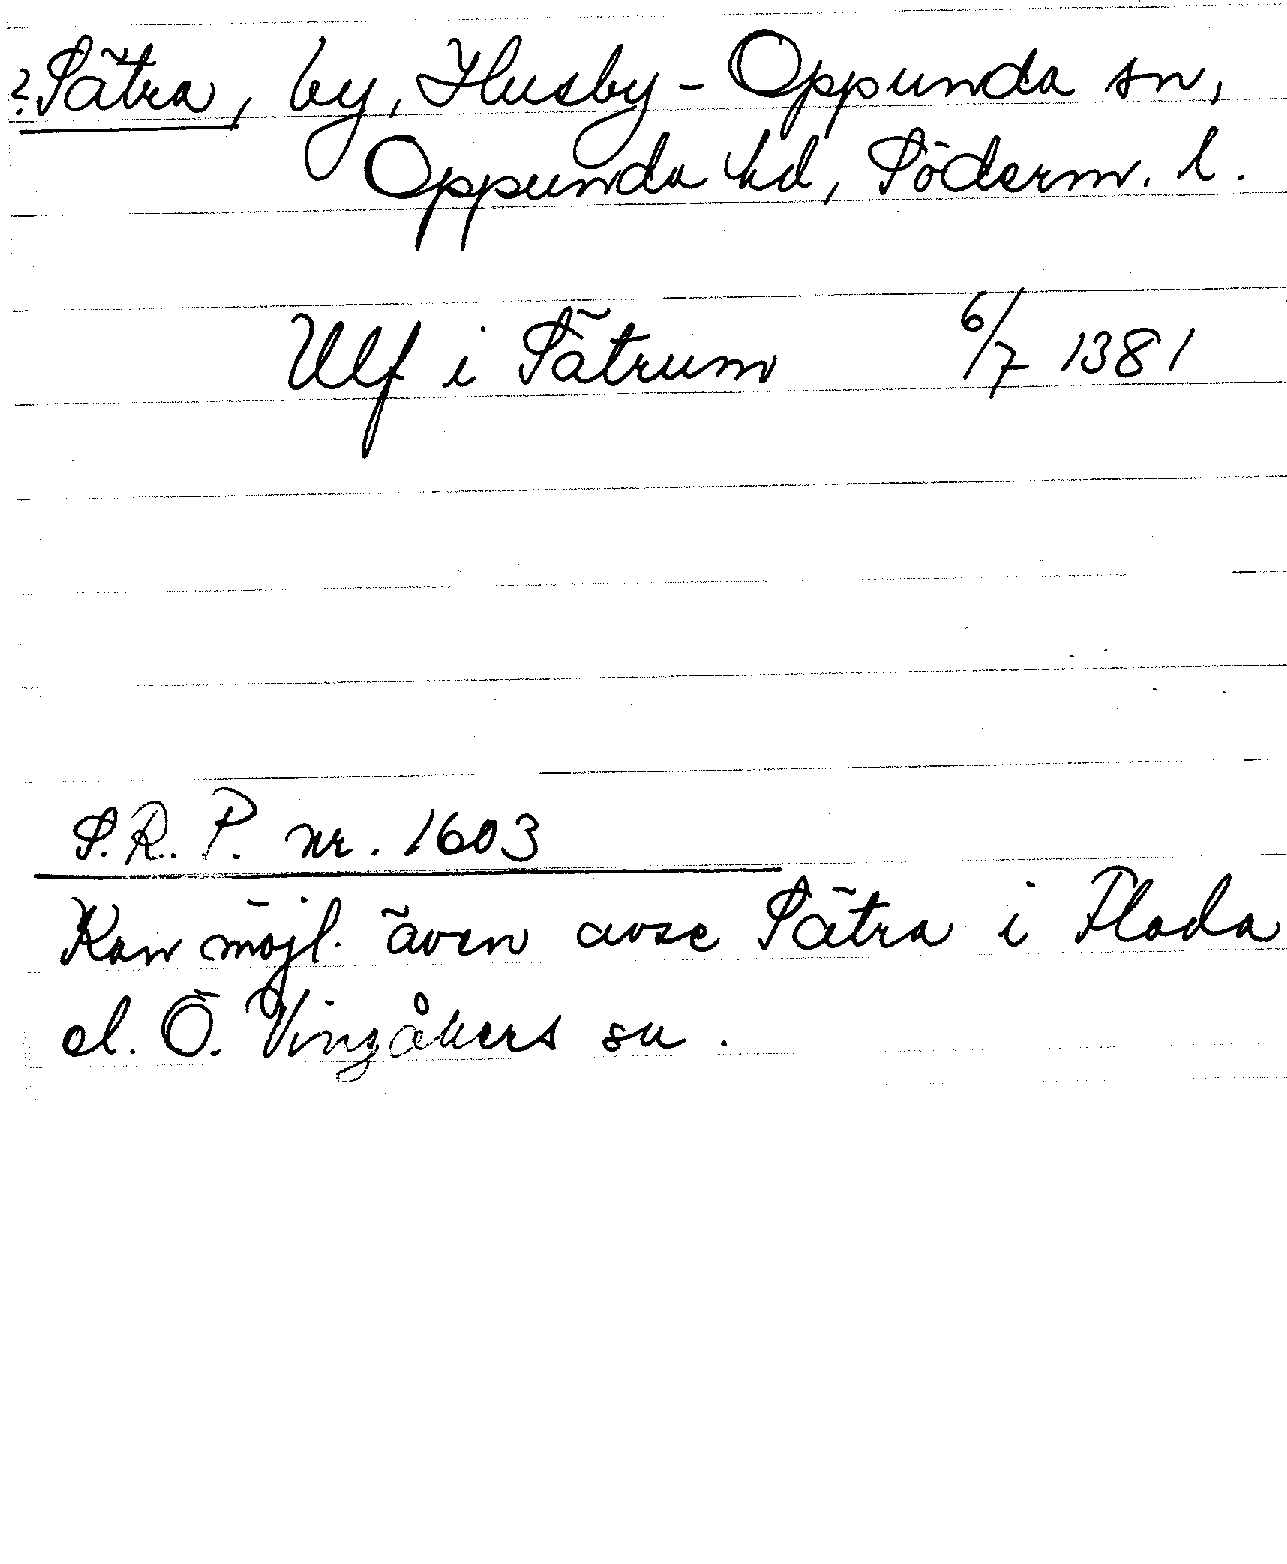 ?Sätra, by, Husby-Oppunda sn,
Oppunda hd, Söderm. l.
Ulf i Sätrum 6/7 1381
S.R.P. nr. 1603
Kan möjl. även avse Sätra i Floda
el. Ö. Vingåkers sn.